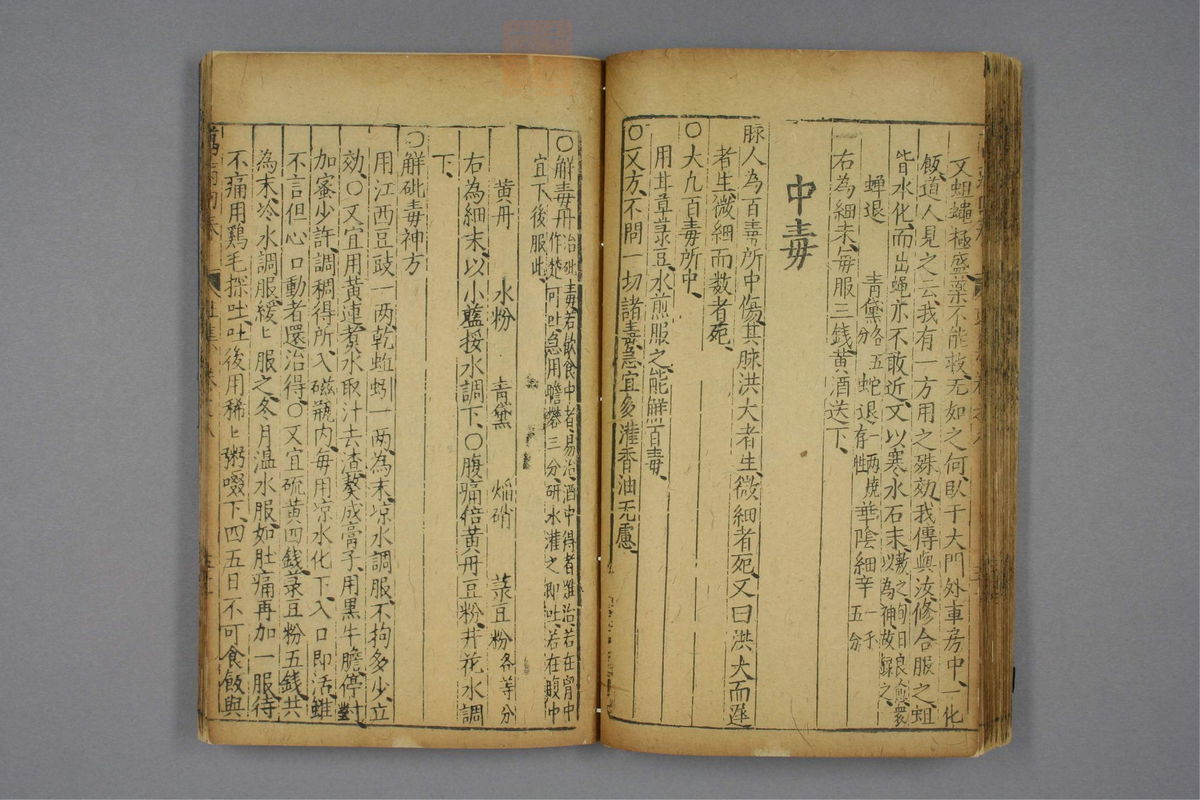 又蛆蠅極盛藥不能救无如之何臥于大門外車房中一化
飯道人見之云我有一方用之殊効我傳與汝修合服之蛆
皆水化而出蠅亦不敢近又以寒水石末摻之旬日良愈衆以為神故錄之
蟬退 青黛各五分 蛇退一兩燒存性 華陰細辛五分
右為細末每服三錢黃酒送下
中毒
脉人為百毒所中傷其脉洪大者生微細者死又曰洪大而遲
者生微細而数者死
○大凡百毒所中
用甘草菉豆水煎服之能觧百毒
○又方不問一切諸毒急宜多灌香油无慮
○觧毒丹治砒毒若飲食中者易治酒中得者难治若在胷中
作楚可吐急用膽礬三分研水灌之即吐若在腹中
宜下後服此
黃丹 水粉 青黛 焔硝 菉豆粉各等分
右為細末以小藍挼水調下○腹痛倍黃丹豆粉井花水調
下
○觧砒毒神方
用江西豆豉一兩乾蚯蚓一兩為末凉水調服不拘多少立
効○又宜用黃連煮水取汁去渣熬成膏子用黑牛膽停對
加蜜少許調稠得所入磁瓶内每用凉水化下入口即活雖
不言但心口動者還治得○又宜硫黃四錢菉豆粉五錢共
為末冷水調服緩〻服之冬月温水服如肚痛再加一服待
不痛用鷄毛探吐吐後用稀〻粥啜下四五日不可食飯與